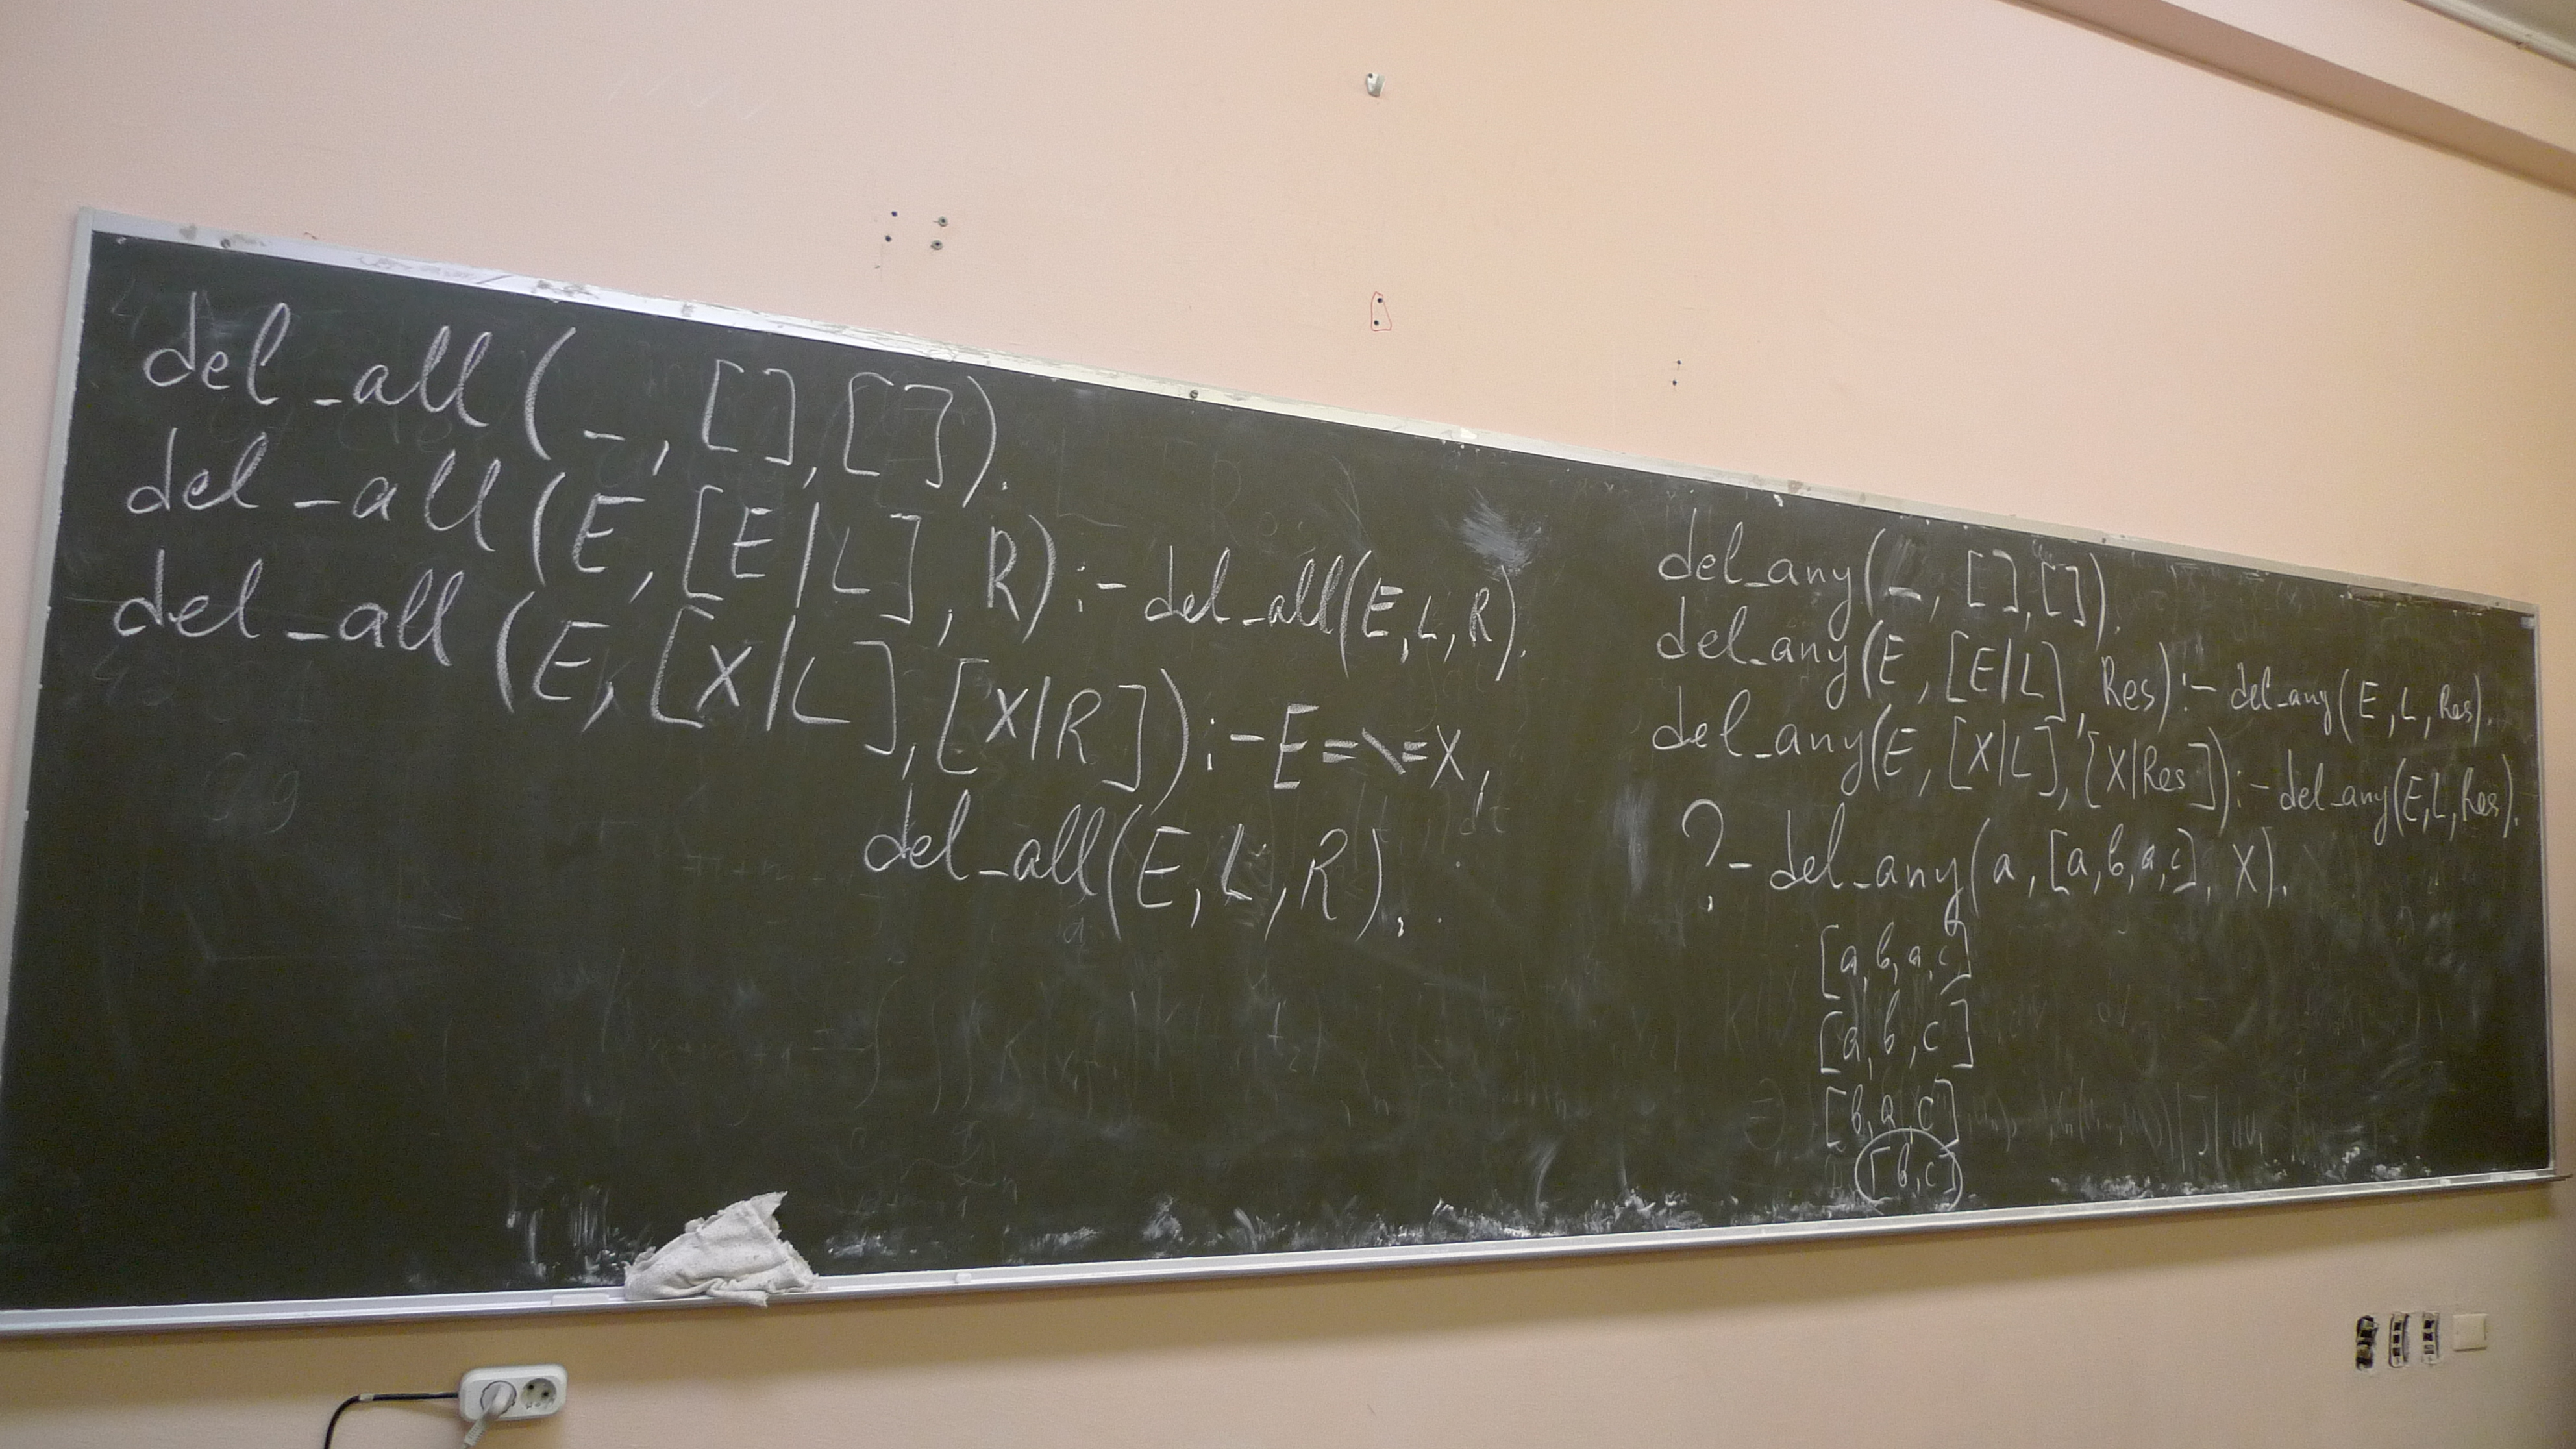 del_all(_, [], []).
del_all(E, [E|L], R) :- del_all(E, L, R).
del_all(E, [X|L], [X|R]) :- E =\= X,
del_all(E, L, R).
del_any(_, [], []).
del_any(E, [E|L], Res) :- del_any(E, L, Res).
del_any(E, [X|L], [X|Res]) :- del_any(E, L, Res).
?- del_any(a, [a, b, a, c], X).
[a, b, a, c]
[a, b, c]
[b, a, c]
[b, c]